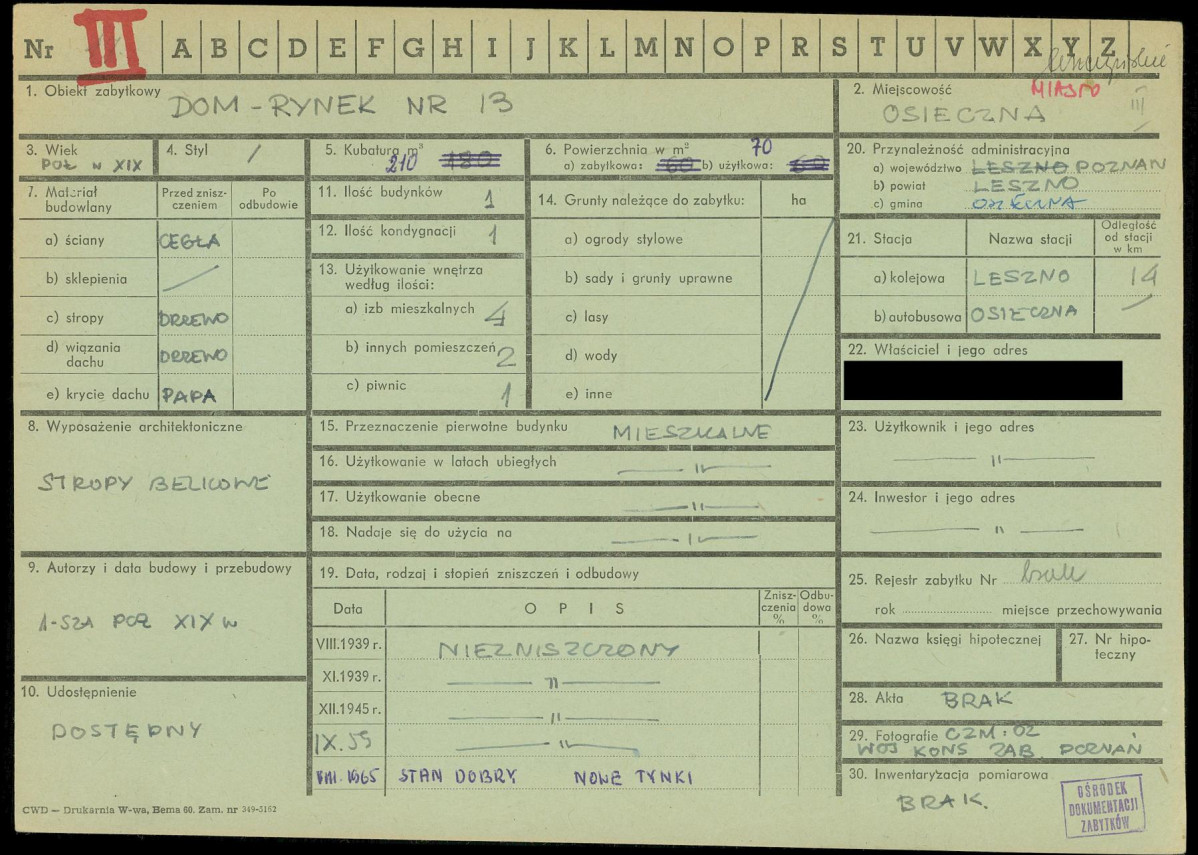 Nr III A B C D E F G H I J K L M N O P R S T U V W X Y Z
1. Obiekt zabytkowy DOM - RYNEK NR 13
2. Miejscowość MIASTO III
OSIECZNA
3. Wiek
POŁ W XIX
4. Styl /
5. Kubatura m³
210 180
6. Powierzchnia w m² 70
a) zabytkowa: 60 b) użytkowa: 60
20. Przynależność administracyjna
a) województwo LESZNO POZNAŃ
b) powiat LESZNO
c) gmina
7. Materiał budowlany
Przed zniszczeniem
Po odbudowie
a) ściany CEGŁA
b) sklepienia /
c) stropy DRZEWO
d) wiązania dachu DRZEWO
e) krycie dachu PAPA
11. Ilość budynków 1
12. Ilość kondygnacji 1
13. Użytkowanie wnętrza
według ilości:
a) izb mieszkalnych 4
b) innych pomieszczeń 2
c) piwnic 1
14. Grunty należące do zabytku: ha
a) ogrody stylowe
b) sady i grunty uprawne
c) lasy
d) wody
e) inne
21. Stacja
Nazwa stacji
Odległość
od stacji
w km
a) kolejowa LESZNO 14
b) autobusowa OSIECZNA
22. Właściciel i jego adres
8. Wyposażenie architektoniczne
STROPY BELKOWE
15. Przeznaczenie pierwotne budynku MIESZKALNE
16. Użytkowanie w latach ubiegłych — " —
17. Użytkowanie obecne — " —
18. Nadaje się do użycia na — " —
23. Użytkownik i jego adres
— " —
24. Inwestor i jego adres
— " —
9. Autorzy i data budowy i przebudowy
1-SZA POŁ XIX W
19. Data, rodzaj i stopień zniszczeń i odbudowy
Data
OPIS
Zniszczenia
%
Odbudowa
%
VIII.1939 r. NIEZNISZCZONY
XI.1939 r. — " —
XII.1945 r. — " —
IX.59 — " —
VIII.1965 STAN DOBRY NOWE TYNKI
25. Rejestr zabytku Nr brak
rok miejsce przechowywania
26. Nazwa księgi hipotecznej
27. Nr hipoteczny
10. Udostępnienie
DOSTĘPNY
28. Akta BRAK
29. Fotografie CZM: 02
WOJ KONS ZAB. POZNAŃ
30. Inwentaryzacja pomiarowa
BRAK.
OŚRODEK
DOKUMENTACJI
ZABYTKÓW
CWD — Drukarnia W-wa, Bema 60. Zam. nr 349-5162